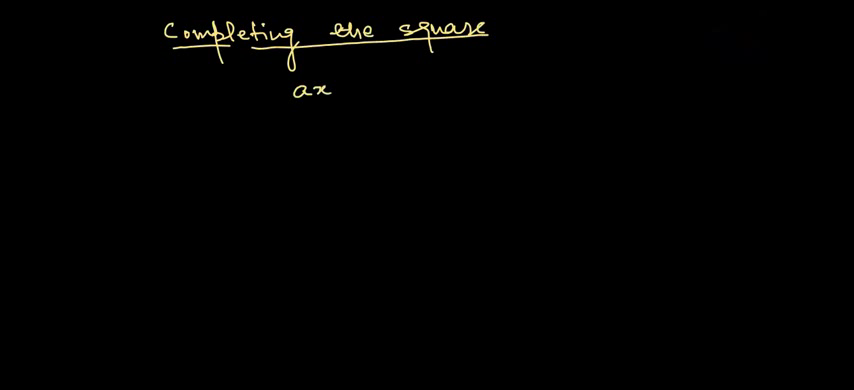 Completing the square
ax